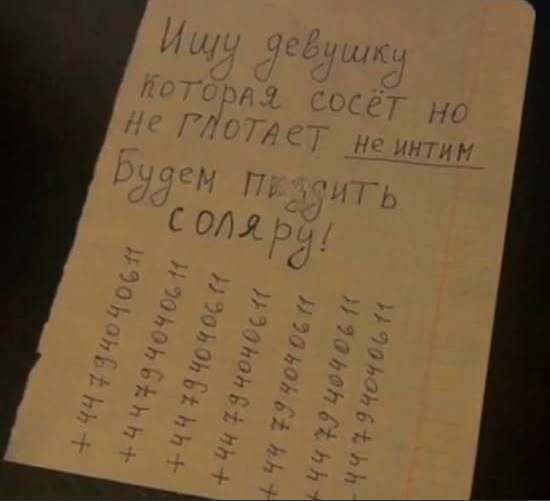 Ищу девушку
которая сосёт но
не глотает не интим
Будем пиздить
соляру!
+44794040611
+44794040611
+44794040611
+44794040611
+44794040611
+44794040611
+44794040611